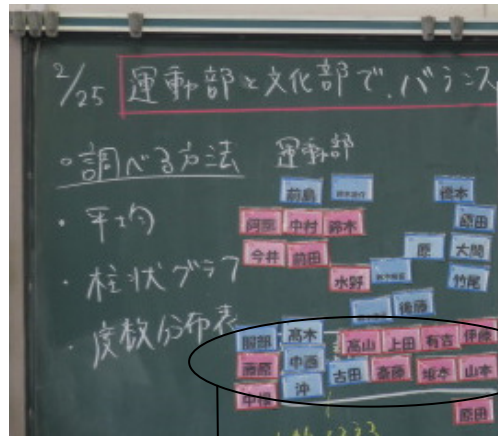 2/25 運動部と文化部で、バランス
・調べる方法
運動部
・平均
・柱状グラフ
・度数分布表
前島
橋本
阿部 中村 鈴木
原田
今井 前田
原 大関
水野
竹尾
後藤
服部 高木 高山 上田 有吉 伊藤
藤原 中西 古田 斎藤 坂本 山本
沖
原田